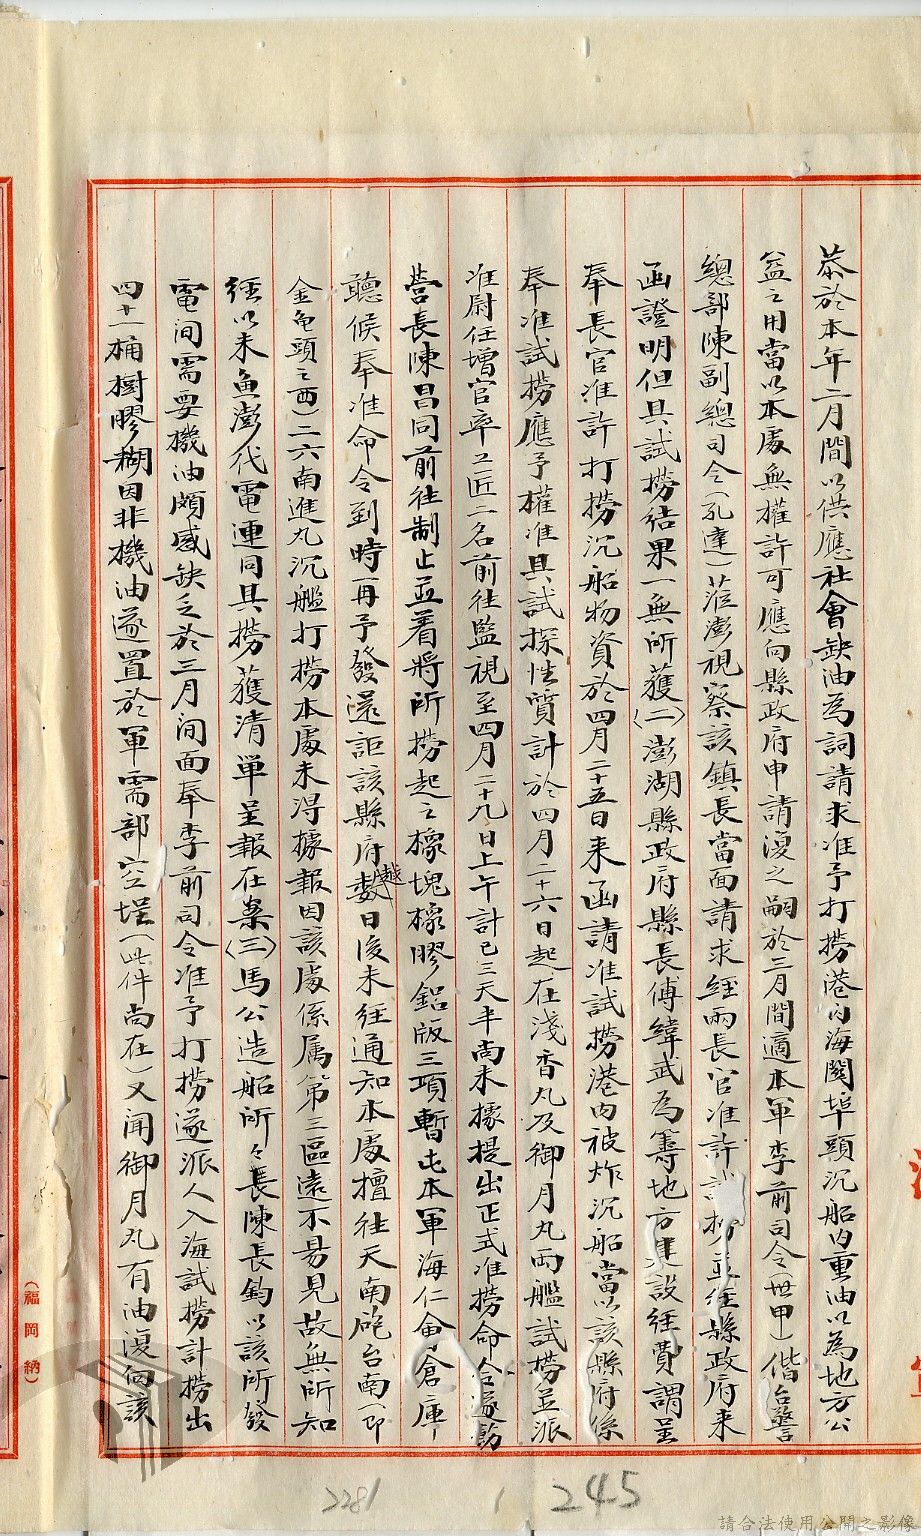 恭於本年二月間以供應社會缺油為詞請求准予打撈港內海關埠頭沉船內重油以為地方公
益之用當以本處無權許可應向縣政府申請復之嗣於三月間適本軍李前司令(世甲)偕台警
總部陳副總司令(孔達)蒞澎視察該鎮長當面請求經兩長官准許試撈並經縣政府來
函證明但其試撈結果一無所獲〈二〉澎湖縣政府縣長傅緯武為籌地方建設經費謂呈
奉長官准許打撈沉船物資於四月二十五日來函請准試撈港內被炸沉船當以該縣府係
奉准試撈應予權准其試探性質計於四月二十六日起在淺香丸及御月丸兩艦試撈並派
准尉任增官率工匠二名前往監視至四月二十九日上午計已三天半尚未據提出正式准撈命令遂飭
營長陳昌同前往制止並着將所撈起之橡塊橡膠鋁版三項暫屯本軍海仁會倉庫
聽候奉准命令到時再予發還詎該縣府越數日後未經通知本處擅往天南砲台南(即
金龜頭之西)二六南進丸沉艦打撈本處未得據報因該處係屬第三區遠不易見故無所知
經以未魚澎代電連同其撈獲清單呈報在案〈三〉馬公造船所々長陳長鈞以該所發
電間需要機油頗感缺乏於三月间面奉李前司令准予打撈遂派人入海試撈計撈出
四十一桶樹膠糊因非機油遂置於軍需部空埕(此件尚在)又聞御月丸有油復向該
(福岡納)
2281
245
請合法使用公開之影像